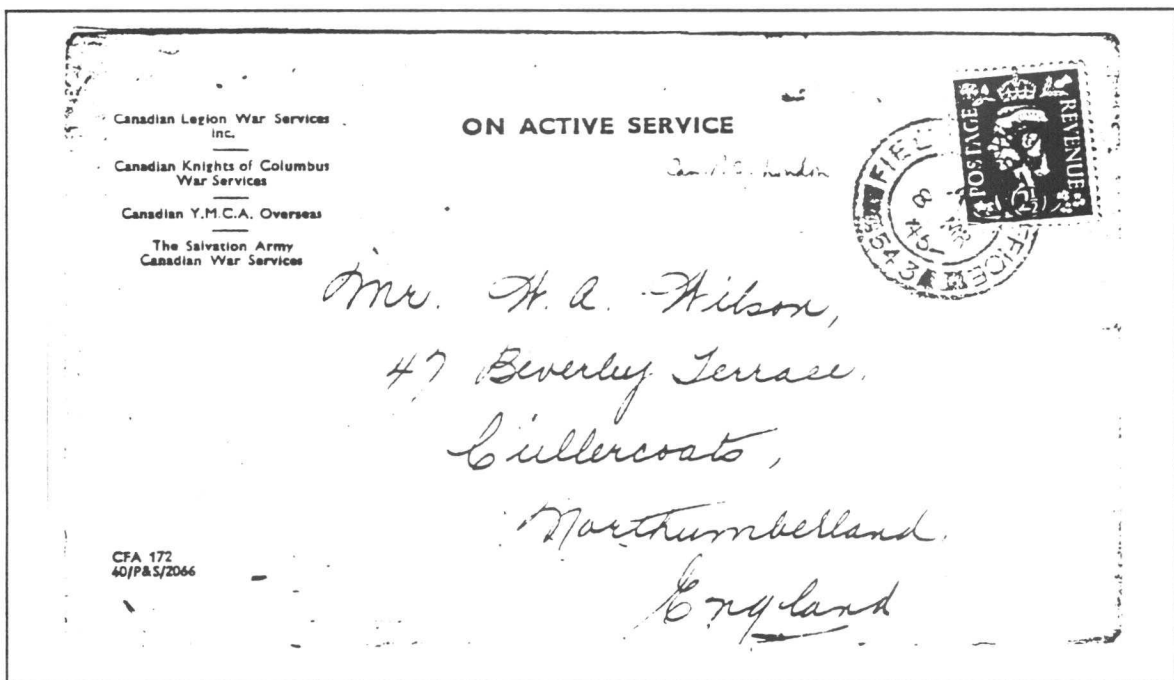 Canadian Legion War Services
Inc.
Canadian Knights of Columbus
War Services
Canadian Y.M.C.A. Overseas
The Salvation Army
Canadian War Services
ON ACTIVE SERVICE
London
POSTAGE
REVENUE
2½
FIEL
FFICE
543
8
45
Mr. W. A. Wilson,
47 Beverley Terrase.
Cullercoats,
Northumberland.
England
CFA 172
40/P&S/2066